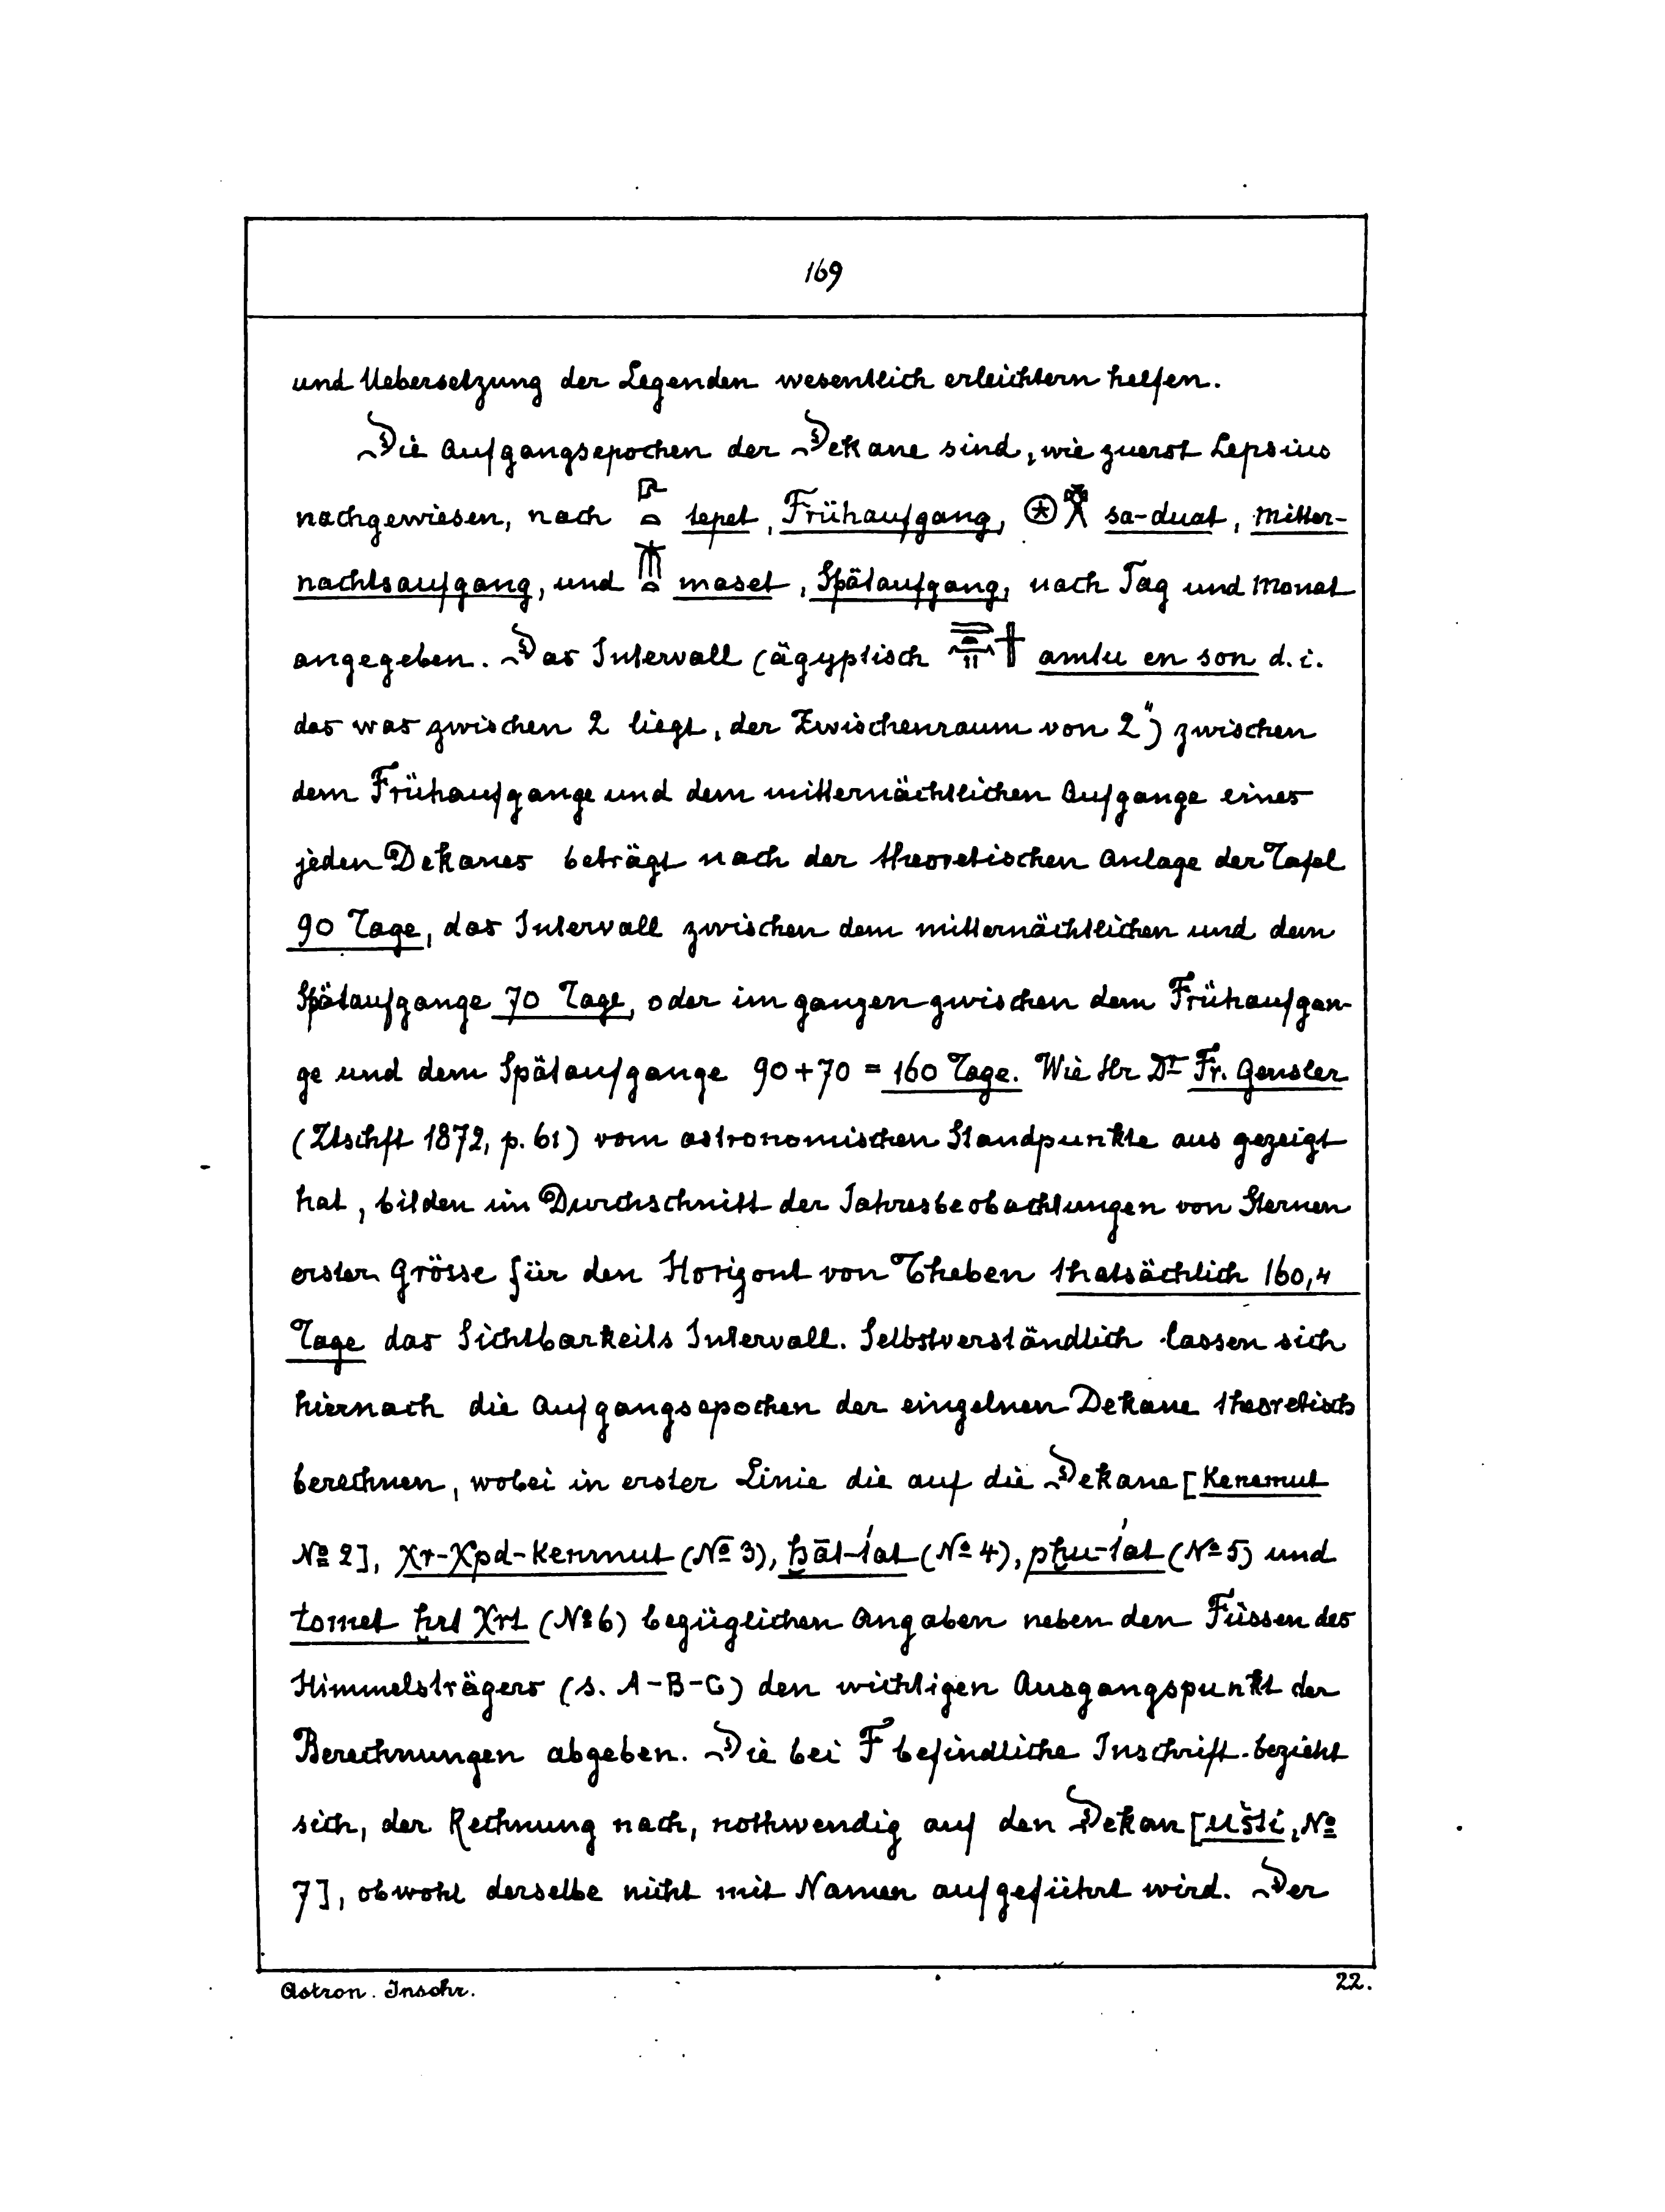 169
und Uebersetzung der Legenden wesentlich erleichtern helfen.
Die Aufgangsepochen der Dekane sind, wie zuerst Lepsius
nachgewiesen, nach tepet, Frühaufgang, sa-duat, Mitter-
nachtsaufgang, und maset, Spätaufgang, nach Tag und Monat
angegeben. Das Intervall (ägyptisch amtu en son d.i.
das was zwischen 2 liegt, der Zwischenraum von 2") zwischen
dem Frühaufgange und dem mitternächtlichen Aufgange eines
jeden Dekanes beträgt nach der theoretischen Anlage der Tafel
90 Tage, das Intervall zwischen dem mitternächtlichen und dem
Spätaufgange 70 Tage, oder im ganzen zwischen dem Frühaufgan-
ge und dem Spätaufgange 90+70 = 160 Tage. Wie Hr Dr Fr. Gensler
(Ztschft 1872, p. 61) vom astronomischen Standpunkte aus gezeigt
hat, bilden im Durchschnitt der Jahresbeobachtungen von Sternen
erster Grösse für den Horizont von Theben thatsächlich 160,4
Tage das Sichtbarkeits Intervall. Selbstverständlich lassen sich
hiernach die Aufgangsepochen der einzelnen Dekane theoretisch
berechnen, wobei in erster Linie die auf die Dekane [Kenemut
No 2], χr-χpd-kenmut (No 3), ḥāt-t́at (No 4), pḥu-t́at (No 5) und
tomet ḥrt χrt (No 6) bezüglichen Angaben neben den Füssen des
Himmelsträgers (s. A-B-C) den wichtigen Ausgangspunkt der
Berechnungen abgeben. Die bei F befindliche Inschrift bezieht
sich, der Rechnung nach, nothwendig auf den Dekan [Ušti, No
7], obwohl derselbe nicht mit Namen aufgeführt wird. Der
Astron. Inschr. 22.